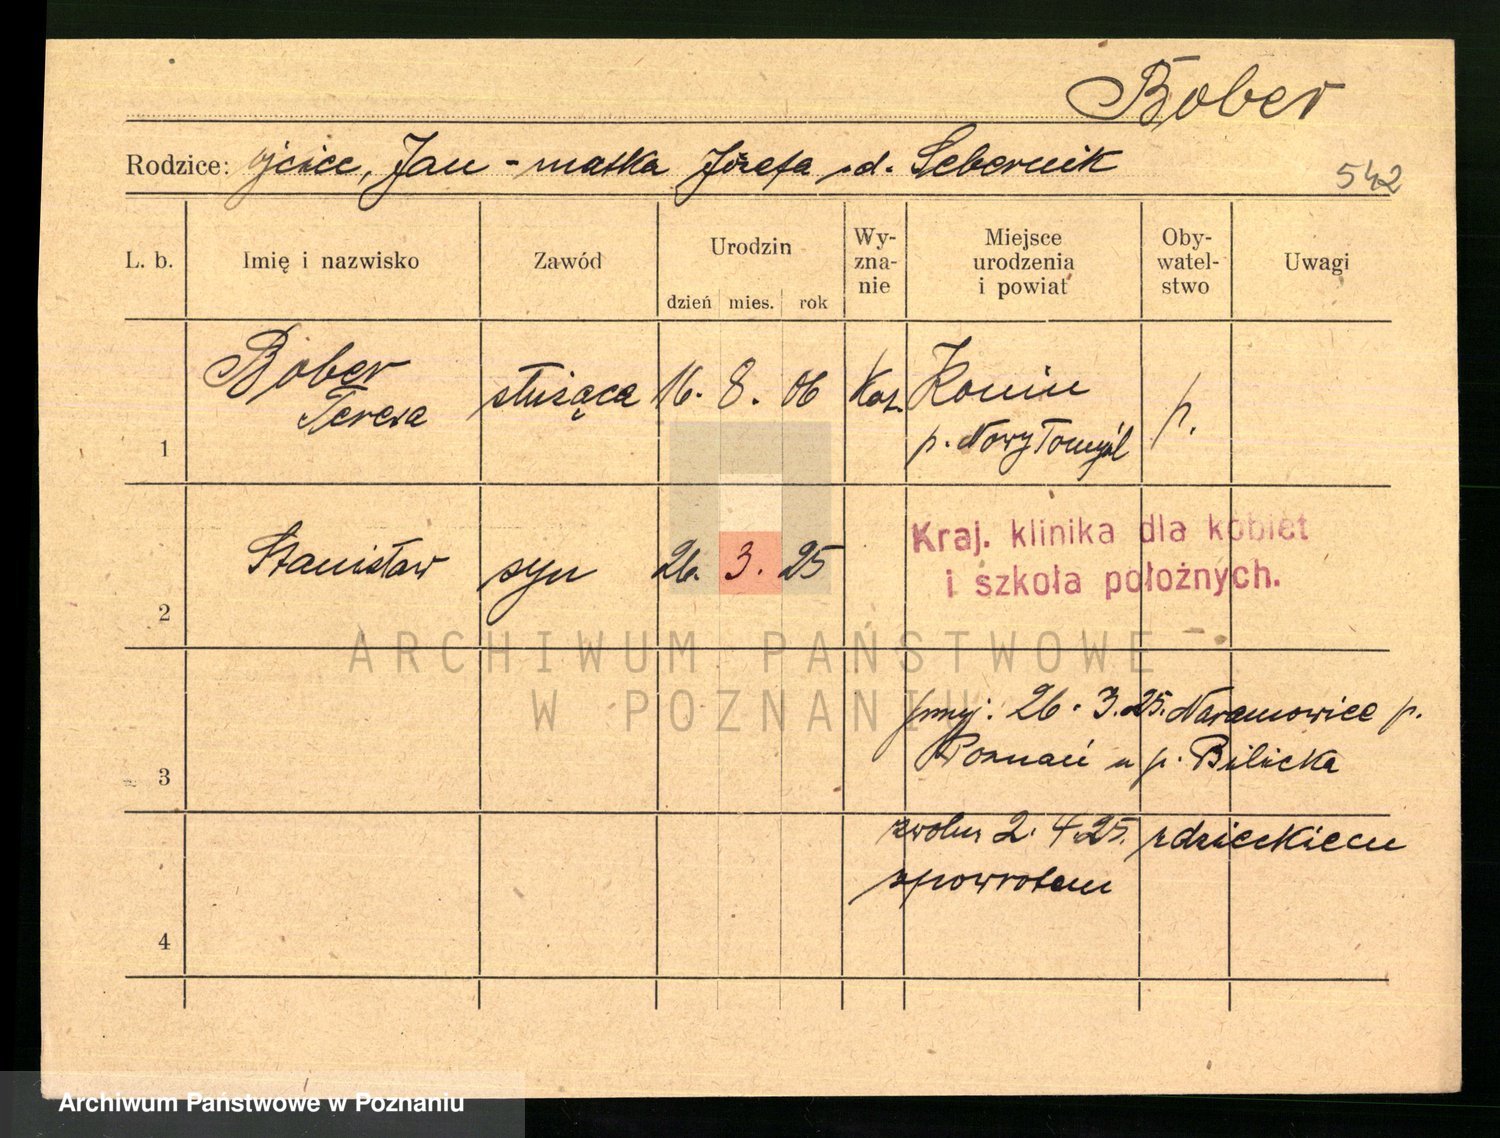 Bober
Rodzice: ojciec, Jan - matka Józefa z d. Sebernik
542
L. b. Imię i nazwisko Zawód Urodzin dzień mies. rok Wy-zna-nie Miejsce urodzenia i powiat Oby-watel-stwo Uwagi
1 Bober Teresa służąca 16. 8. 06 Kat. Konin p. Nowy Tomyśl p.
2 Stanisław syn 26. 3. 25
Kraj. klinika dla kobiet
i szkoła położnych.
ARCHIWUM PAŃSTWOWE
W POZNANIU
3
przyj. 26. 3. 25. Naramowice p.
Poznań u p. Bilicka
zwoln 2. 4. 25. z dzieckiem
z powrotem
4
Archiwum Państwowe w Poznaniu